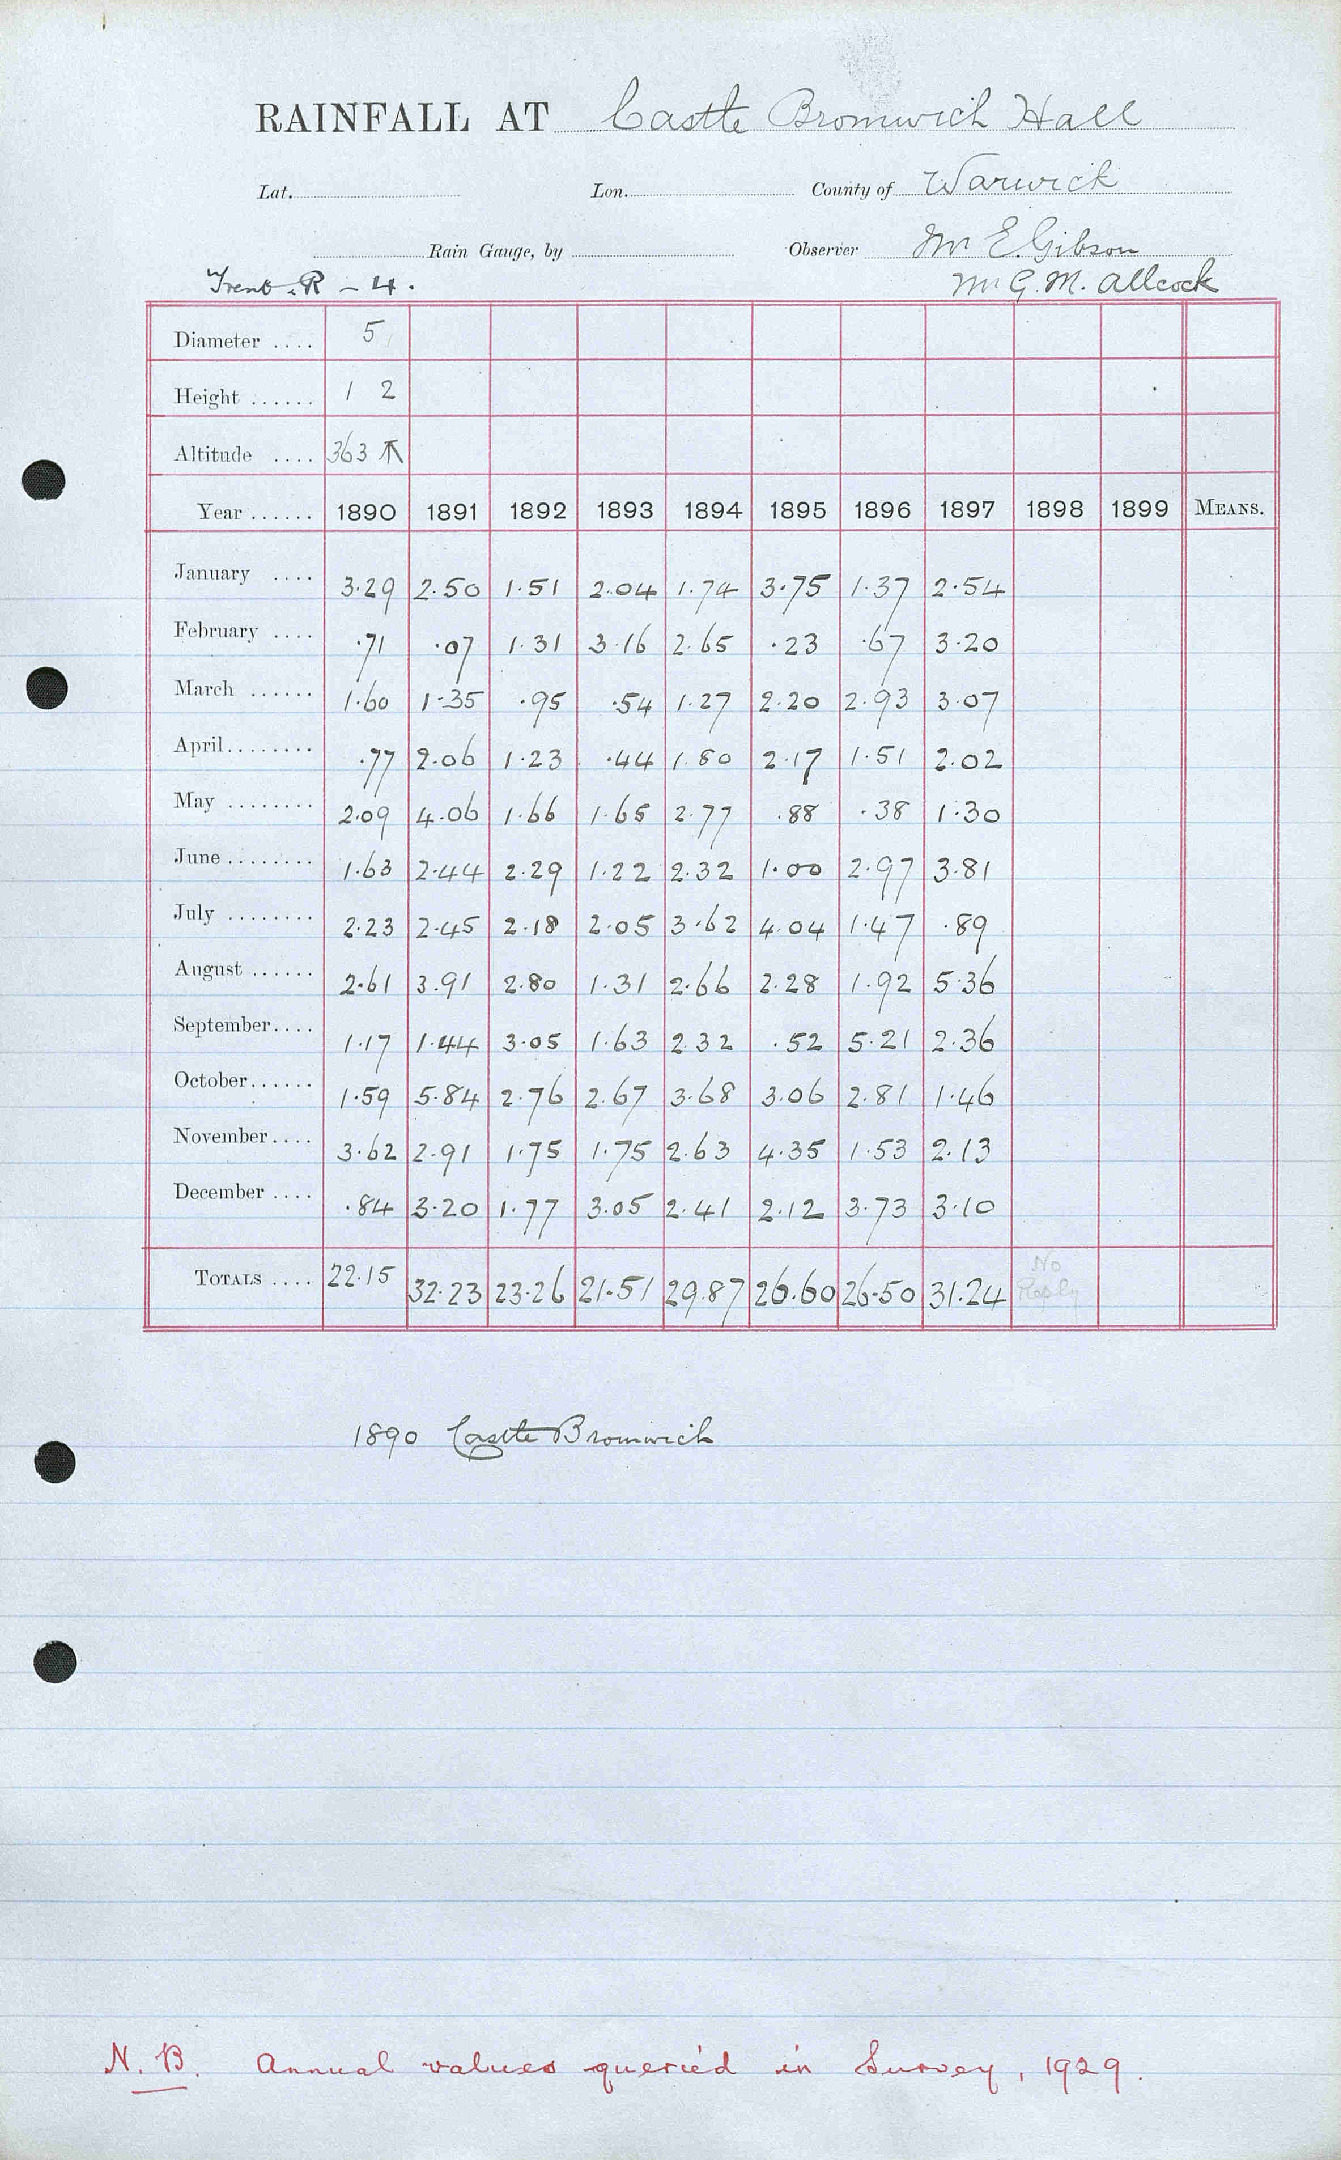 RAINFALL AT Castle Bromwich Hall
Lat. Lon. County of Warwick
Rain Gauge, by Observer Mr E. Gibson
Trent R - 4. Mr G. M. Allcock
Diameter .... 5
Height ...... 1 2
Altitude .... 363
Year ...... 1890 1891 1892 1893 1894 1895 1896 1897 1898 1899 MEANS.
January .... 3.29 2.50 1.51 2.04 1.74 3.75 1.37 2.54
February .... .71 .07 1.31 3.16 2.65 .23 .67 3.20
March ...... 1.60 1.35 .95 .54 1.27 2.20 2.93 3.07
April ........ .77 2.06 1.23 .44 1.80 2.17 1.51 2.02
May ........ 2.09 4.06 1.66 1.65 2.77 .88 .38 1.30
June ........ 1.63 2.44 2.29 1.22 2.32 1.00 2.97 3.81
July ........ 2.23 2.45 2.18 2.05 3.62 4.04 1.47 .89
August ...... 2.61 3.91 2.80 1.31 2.66 2.28 1.92 5.36
September .... 1.17 1.44 3.05 1.63 2.32 .52 5.21 2.36
October ...... 1.59 5.84 2.76 2.67 3.68 3.06 2.81 1.46
November .... 3.62 2.91 1.75 1.75 2.63 4.35 1.53 2.13
December .... .84 3.20 1.77 3.05 2.41 2.12 3.73 3.10
TOTALS .... 22.15 32.23 23.26 21.51 29.87 26.60 26.50 31.24 No Reply
1890 Castle Bromwich
N.B. Annual values queried in Survey, 1929.